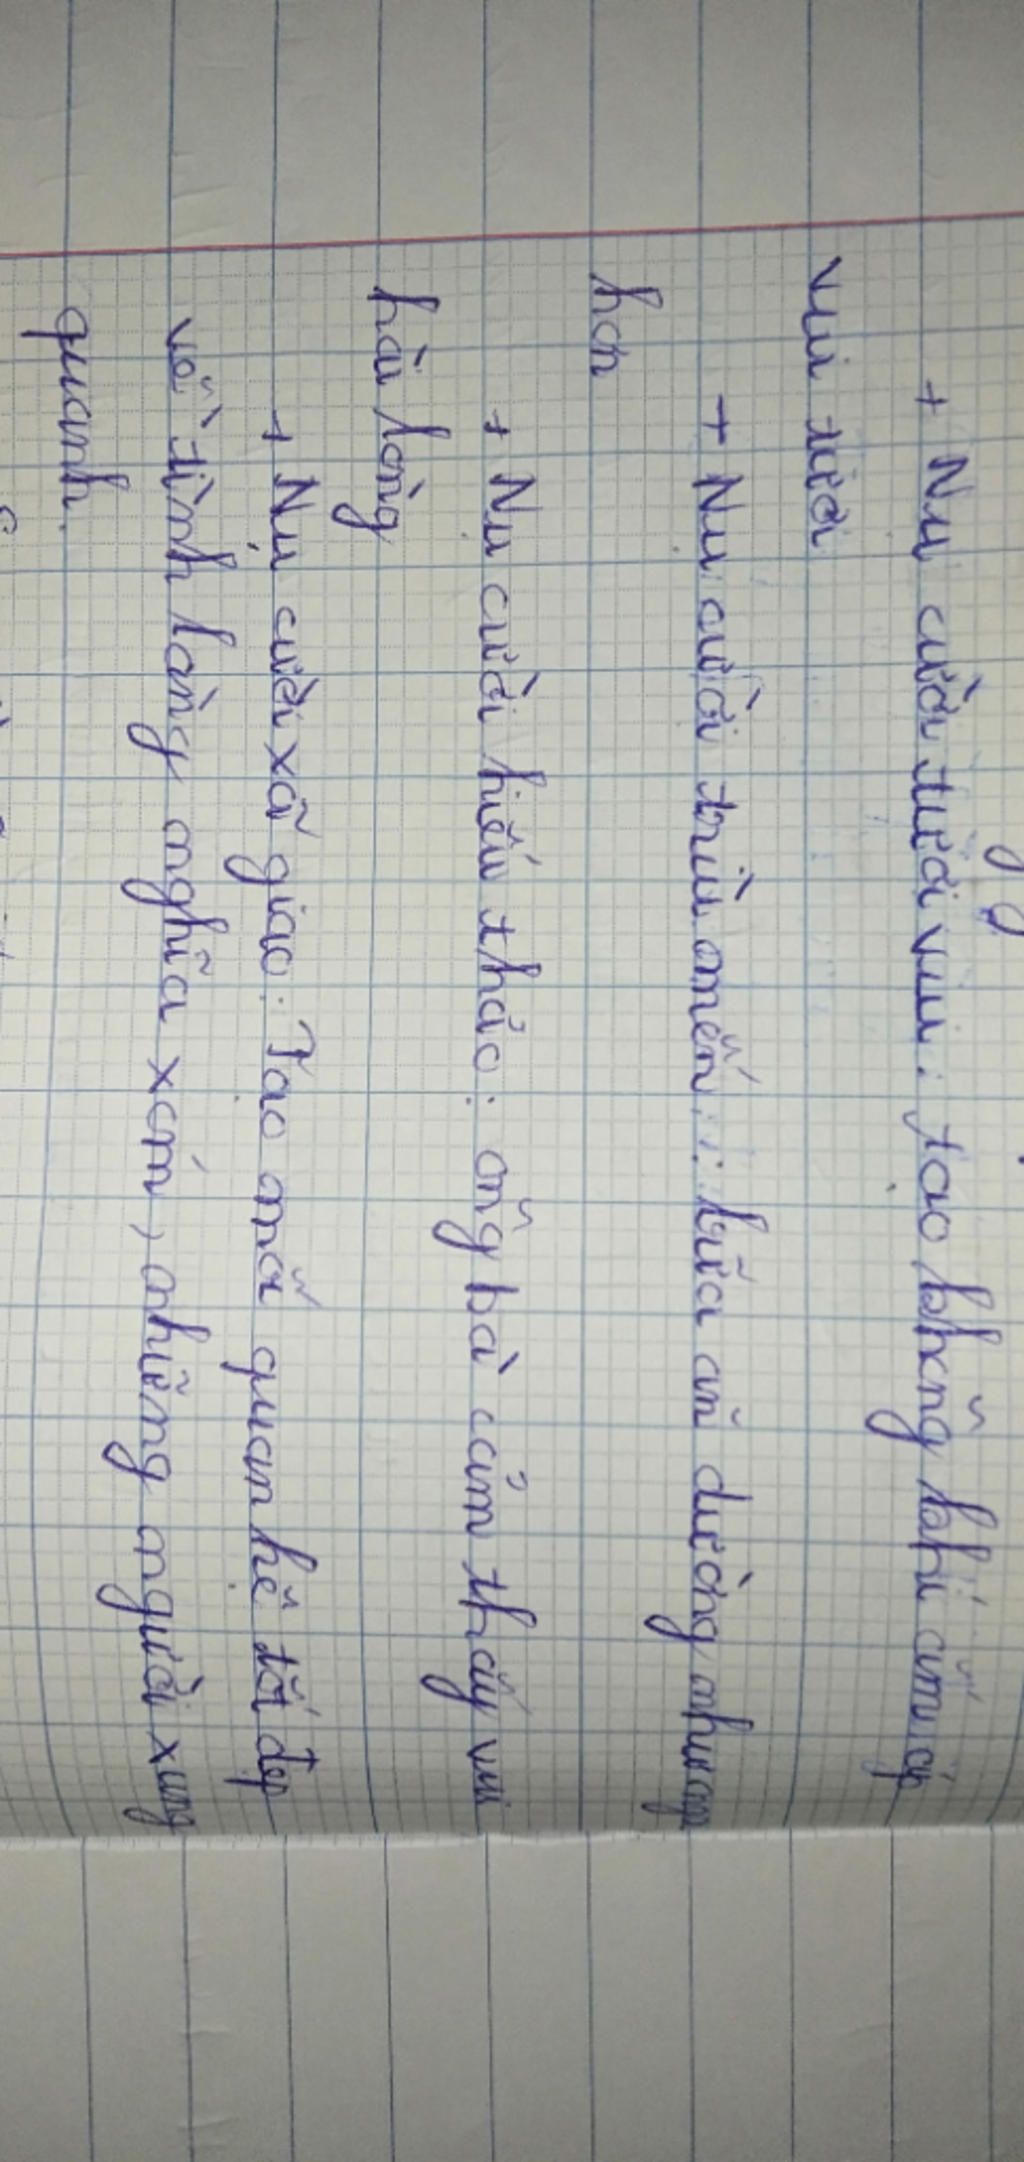 + Nụ cười tươi vui : tạo không khí ấm áp
vui tươi
+ Nụ cười trìu mến : bữa ăn dường như ngon
hơn
+ Nụ cười hiếu thảo : ông bà cảm thấy vui
hài lòng
+ Nụ cười xã giao : Tạo mối quan hệ tốt đẹp
về tình làng nghĩa xóm , những người xung
quanh.